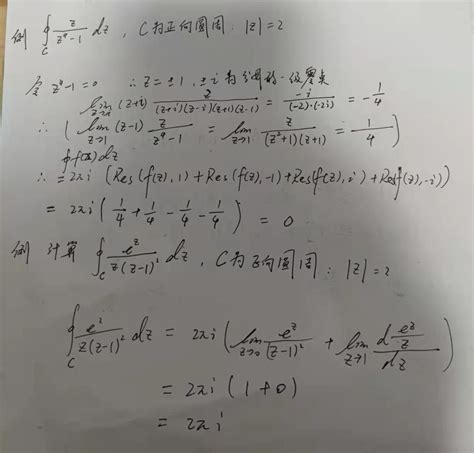 例 ∮_C z/(z⁴-1) dz , C为正向圆周: |z|=2
令 z⁴-1=0 ∴ z=±1, ±i 为分母的一级零点
lim_{z→-i} (z+i) z/((z+i)(z-i)(z+1)(z-1)) = -i/((-2)·(-2i)) = -1/4
∴ ( lim_{z→1} (z-1) z/(z⁴-1) = lim_{z→1} z/((z²+1)(z+1)) = 1/4 )
∮f(z)dz
∴ = 2πi (Res(f(z),1)+Res(f(z),-1)+Res(f(z),i)+Res(f(z),-i))
= 2πi (1/4+1/4-1/4-1/4) = 0
例 计算 ∮_C e^z/(z(z-1)²) dz , C为正向圆周: |z|=2
∮_C e^z/(z(z-1)²) dz = 2πi ( lim_{z→0} e^z/(z-1)² + lim_{z→1} d(e^z/z)/dz )
= 2πi (1+0)
= 2πi